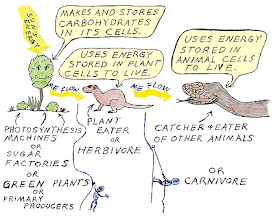 SUN'S
ENERGY
MAKES AND STORES
CARBOHYDRATES
IN ITS CELLS.
USES ENERGY
STORED IN PLANT
CELLS TO LIVE.
USES ENERGY
STORED IN
ANIMAL CELLS
TO LIVE.
FLOW
FLOW
PHOTOSYNTHESIS
MACHINES
OR
SUGAR
FACTORIES
OR
GREEN PLANTS
OR
PRIMARY
PRODUCERS
PLANT
EATER
OR
HERBIVORE
CATCHER & EATER
OF OTHER ANIMALS
OR
CARNIVORE